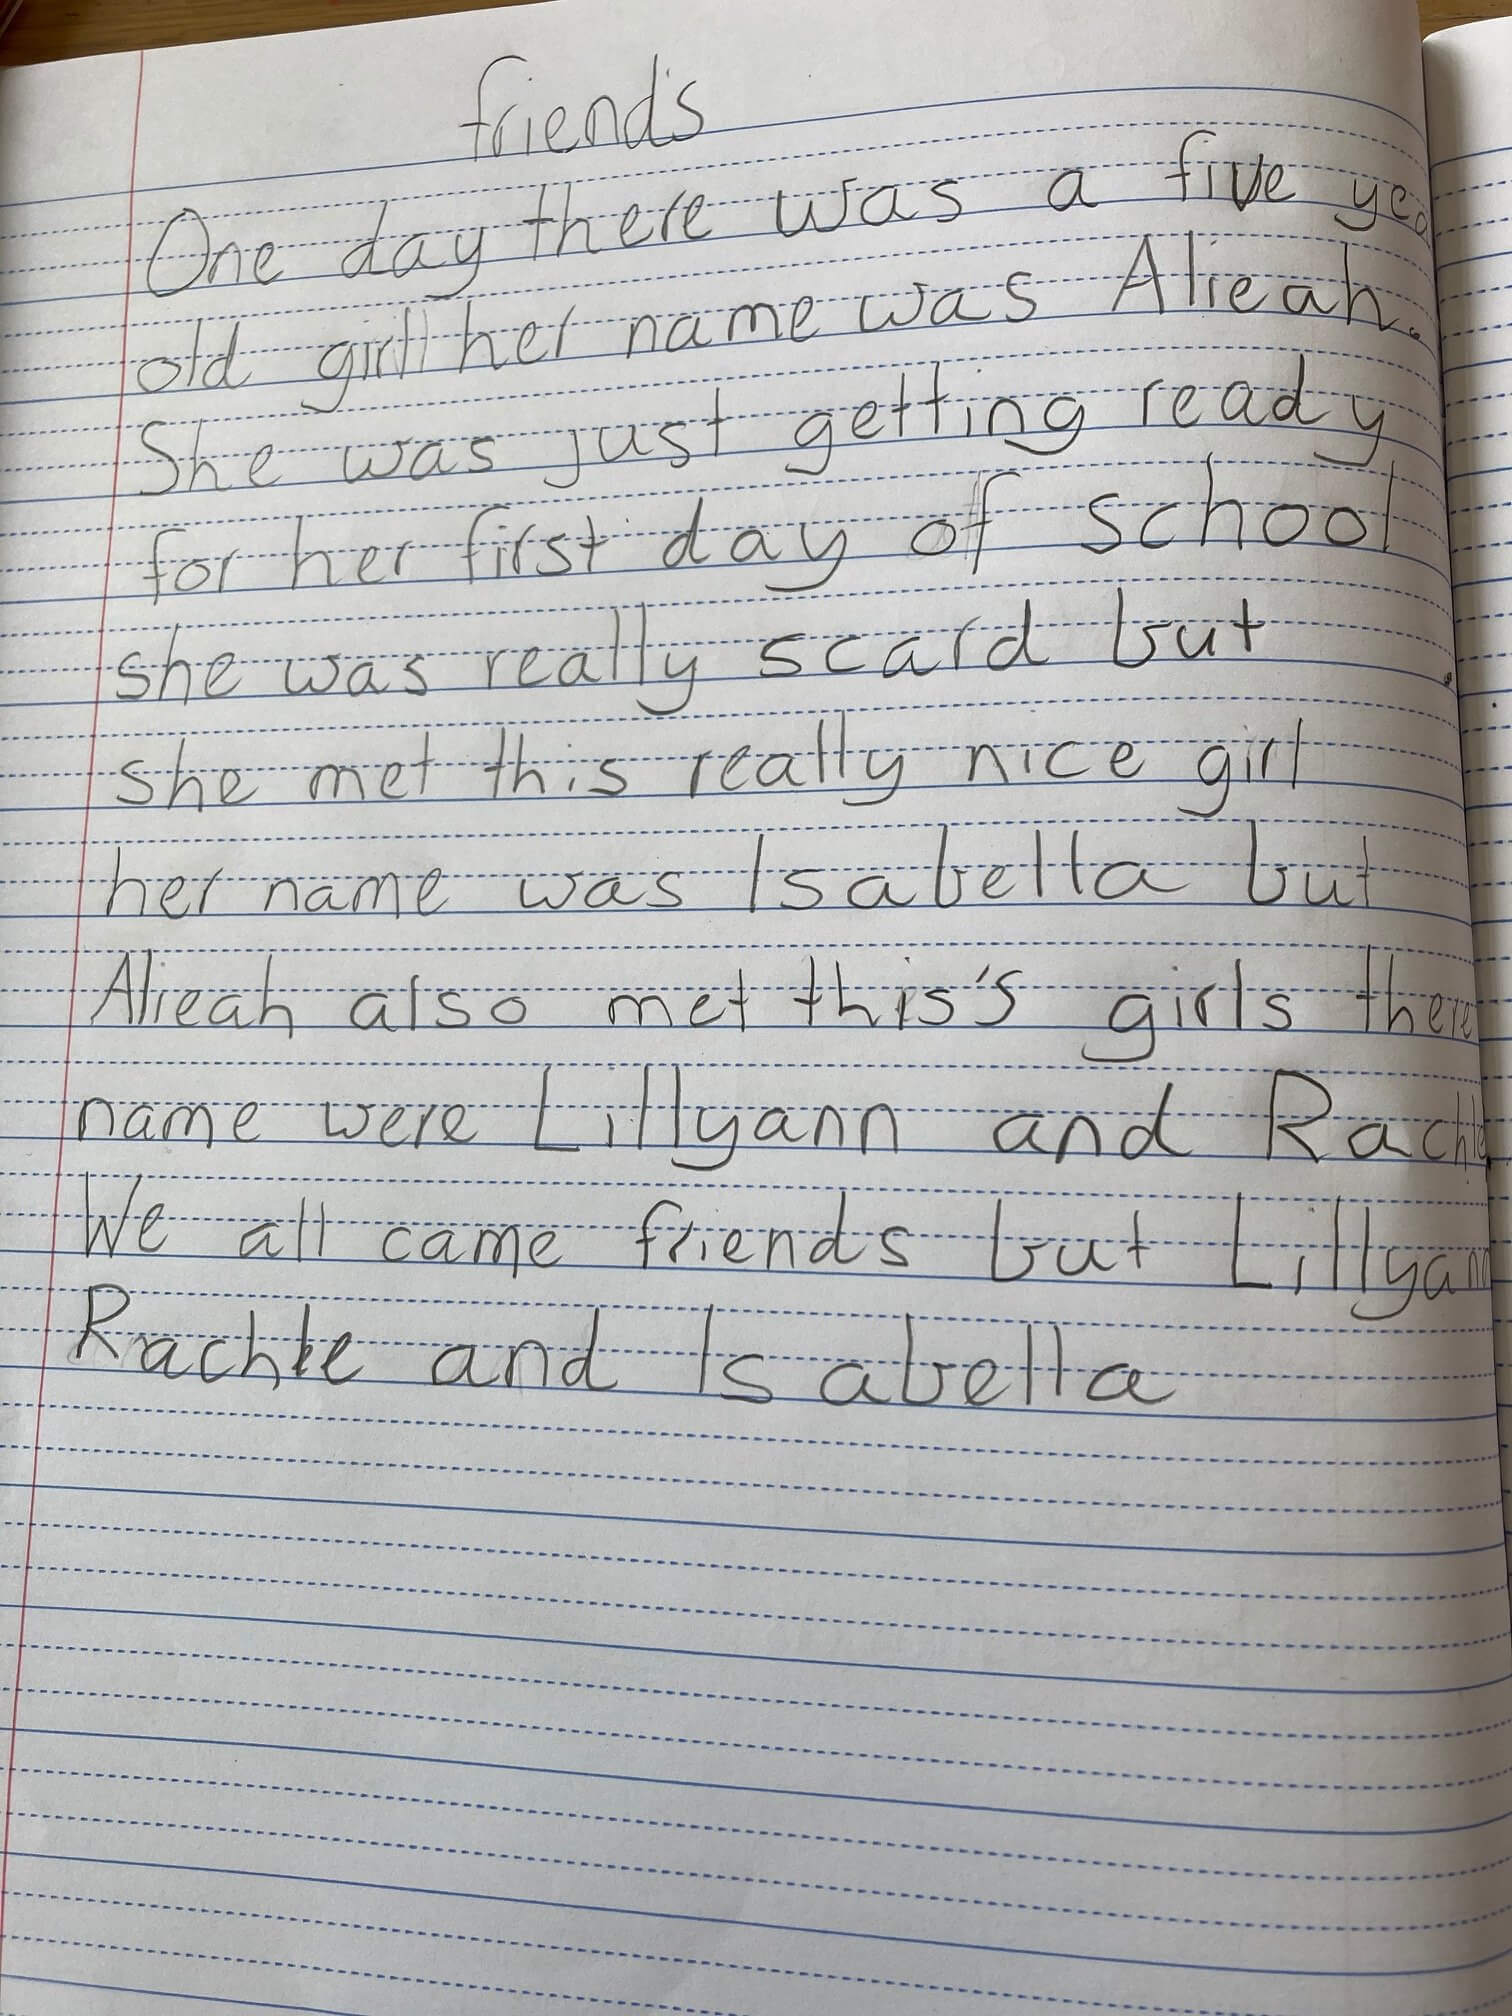 friend's
One day there was a five yea
old girl her name was Alieah.
She was just getting ready
for her first day of school
she was really scard but
she met this really nice girl
her name was Isabella but
Alieah also met this's girls there
name were Lillyann and Rachle.
We all came friends but Lillyann
Rachle and Isabella